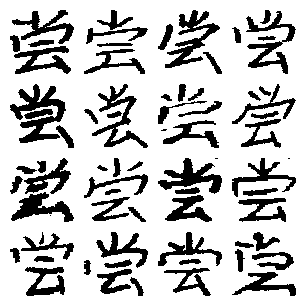 尝尝尝尝
尝尝尝尝
尝尝尝尝
尝尝尝尝